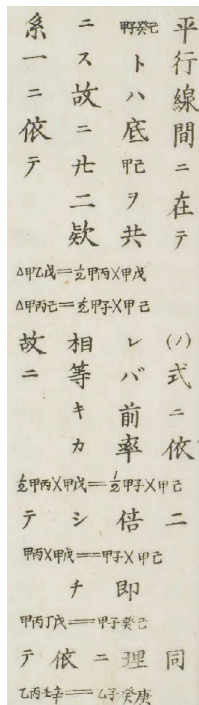 平行線間ニ在テ
甲子癸己トハ底甲己ヲ共
ニス故ニ廿二欵
系一ニ依テ
△甲乙戊==½甲丙×甲戊
△甲丙己==½甲子×甲己
(ノ)式ニ依
レバ前率
相等キカ
故ニ
½甲丙×甲戊==½甲子×甲己
二倍シテ
甲丙×甲戊==甲子×甲己
即チ
甲丙丁戊==甲子癸己
同理ニ依テ
乙丙壬辛==乙子癸庚